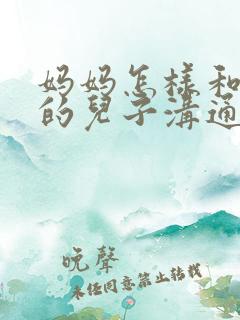 妈妈怎樣和
的兒子溝通
晚聲
未经同意禁止转载